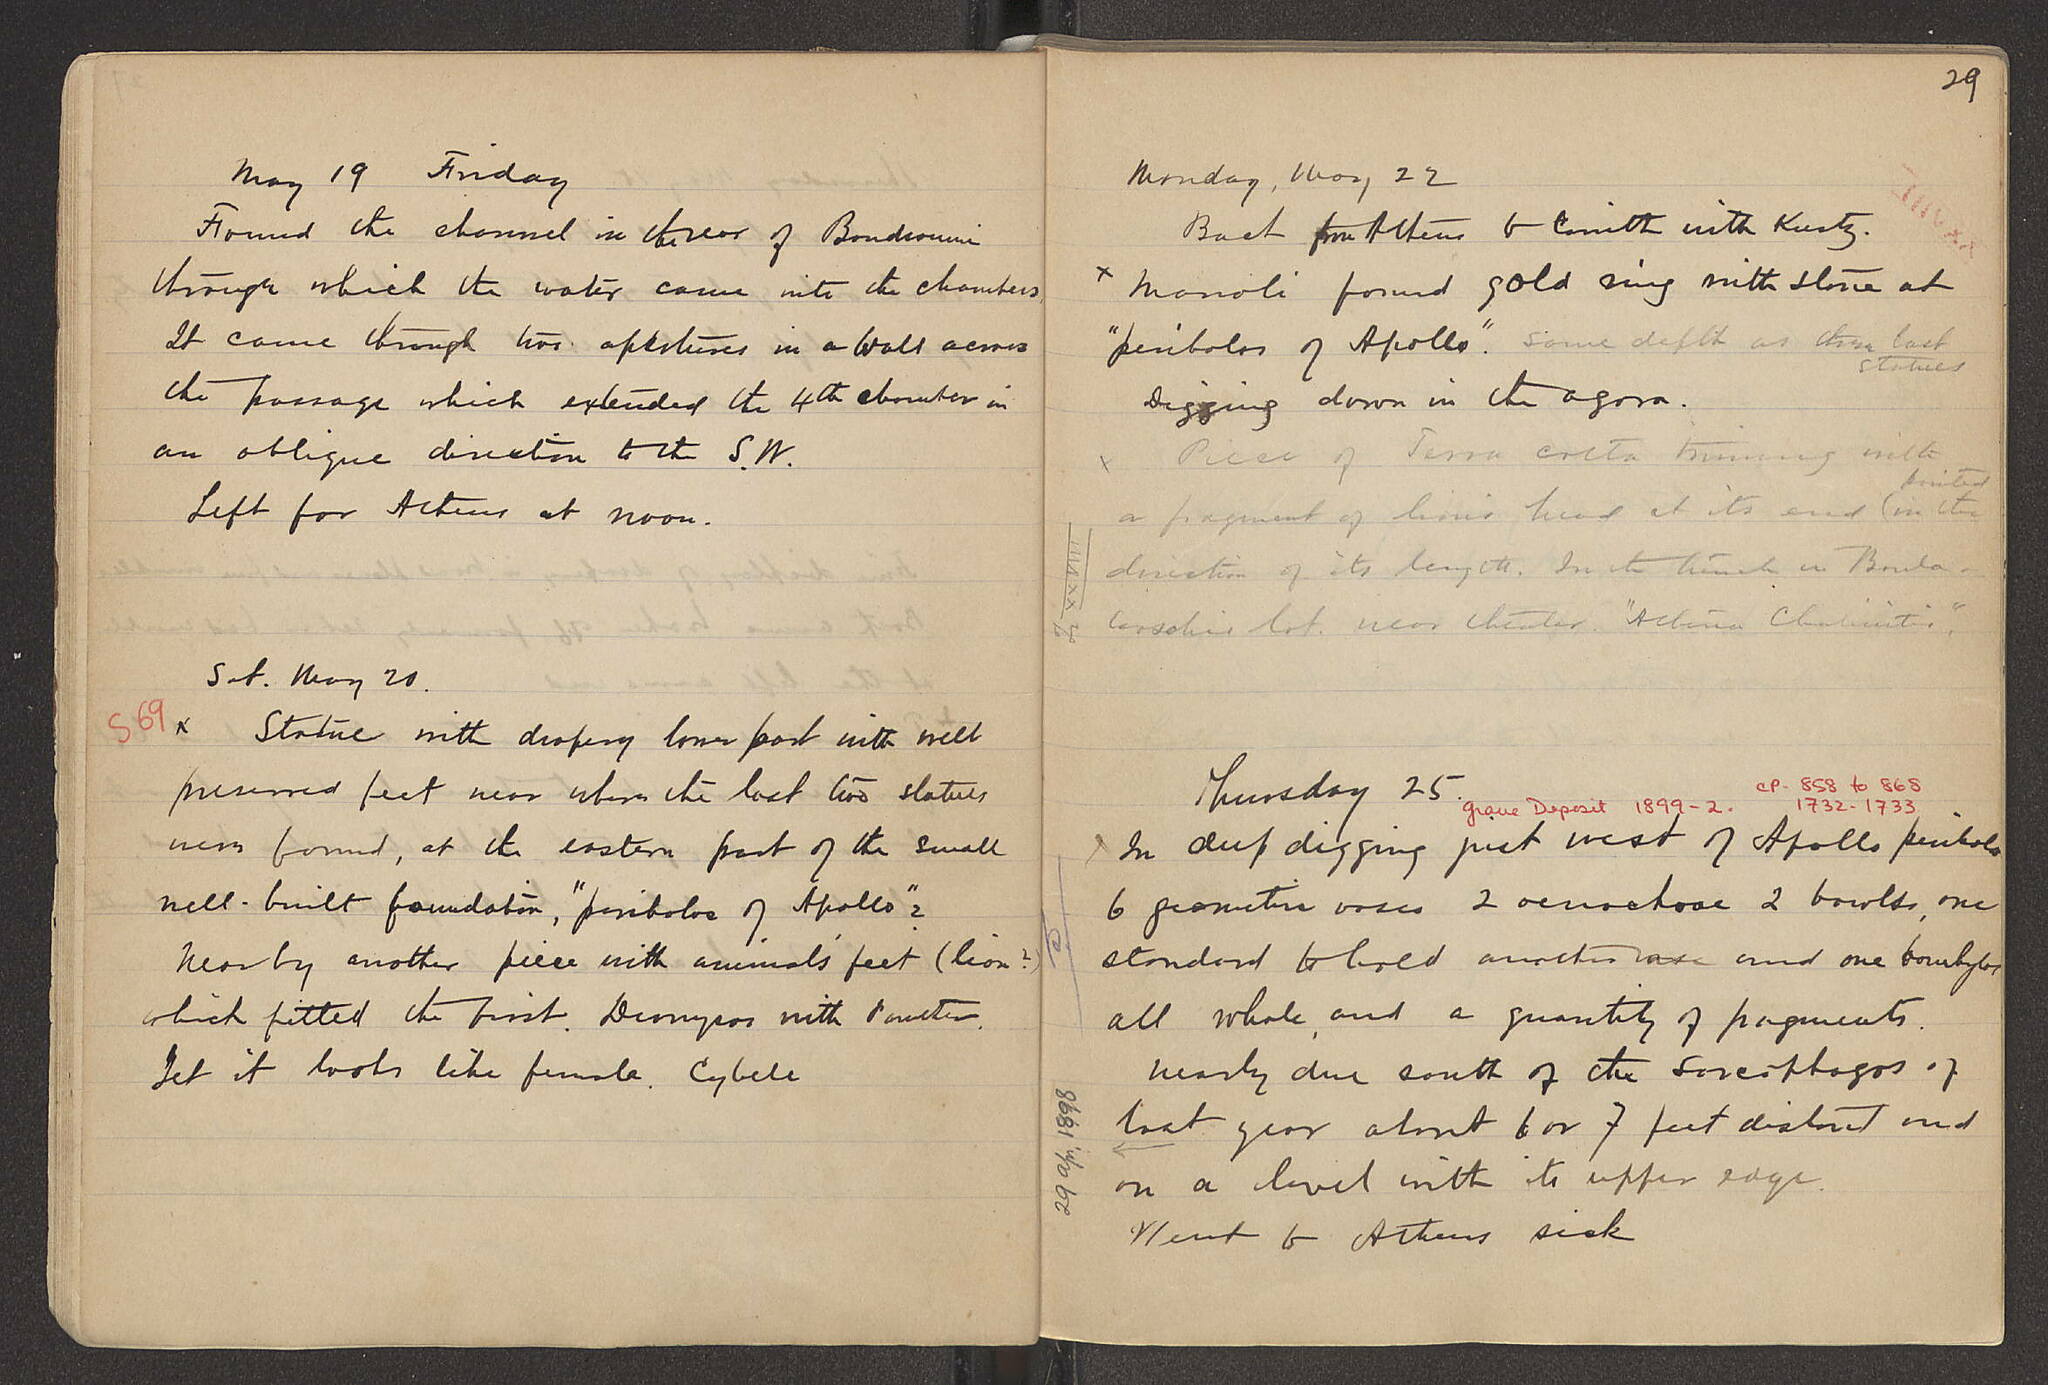 May 19 Friday
Found the channel in the rear of Boudroumi
through which the water came into the chambers.
It came through two apertures in a wall across
the passage which extended the 4th chamber in
an oblique direction to the S.W.
Left for Athens at noon.
Sat. May 20.
S 69 x Statue with drapery lower part with well
preserved feet near where the last two statues
were found, at the eastern part of the small
well-built foundation, "peribolos of Apollo"?
Near by another piece with animal's feet (lion?)
which fitted the first. Dionysos with Panther.
Yet it looks like female. Cybele
29
Monday, May 22
Back from Athens to Corinth with Kurtz.
x Manoli found gold ring with stone at
"peribolos of Apollo". Same depth as those last
statues
Digging down in the agora.
x Piece of Terra cotta trimming with
pointed
a fragment of lion's head at its end (in the
direction of its length. In the trench in
lot. near theater. "Athena Chalinitis".
Thursday 25.
Grave Deposit 1899-2.
CP- 858 to 868
1732-1733
x In deep digging just west of Apollo peribolos
6 geometric vases 2 oenochoae 2 bowls, one
standard to hold another vase and one bombylos
all whole, and a quantity of fragments.
Nearly due south of the Sarcophagos of
last year about 6 or 7 feet distant and
on a level with its upper edge.
Went to Athens sick